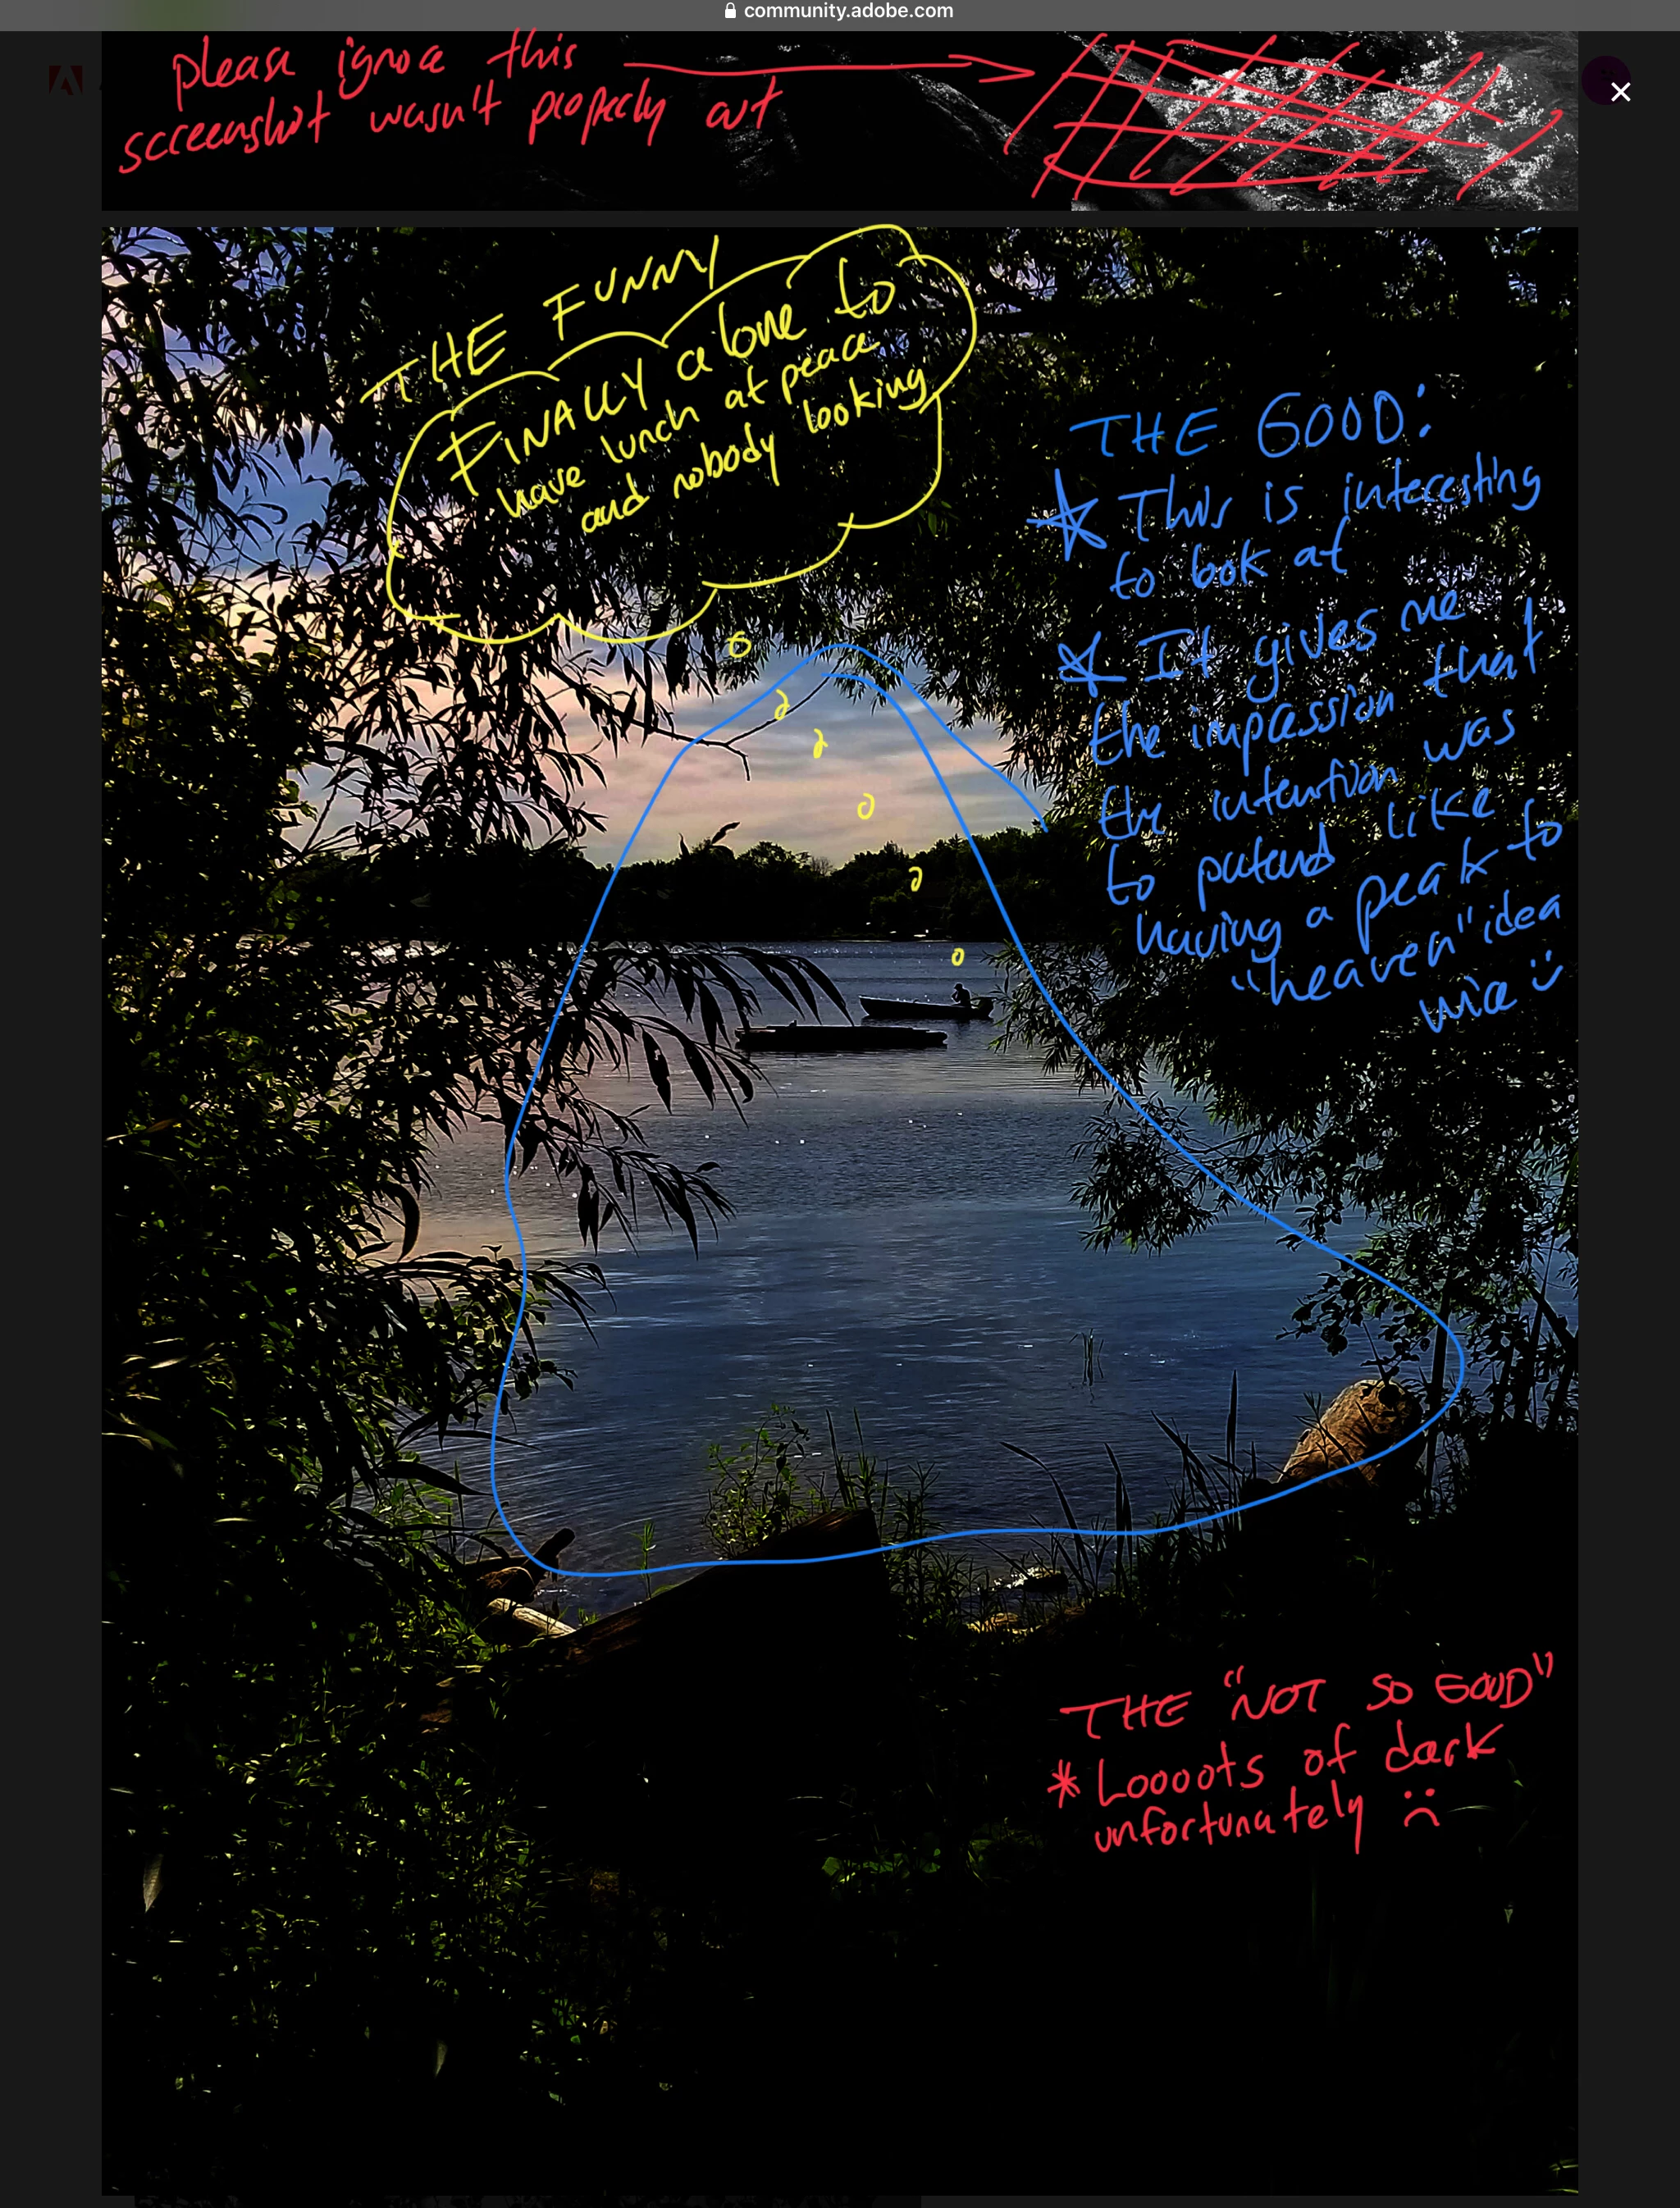 community.adobe.com
please ignore this
screenshot wasn't properly cut
THE FUNNY
FINALLY alone to
have lunch at peace
and nobody looking
THE GOOD:
This is interesting
to look at
It gives me
the impression that
the intention was
to pretend like
having a peak to
"heaven" idea
nice
THE "NOT SO GOOD"
* Loooots of dark
unfortunately